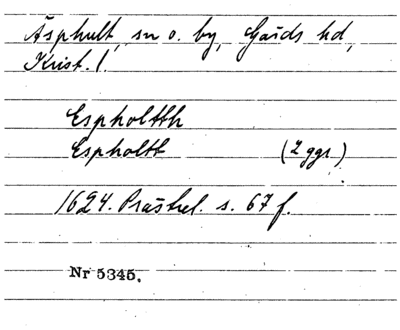 Äsphult, sn o. by, Gärds hd,
Krist. l.
Espholtth
Espholtt (2 ggr)
1624. Prästrel. s. 67 f.
Nr 5345.